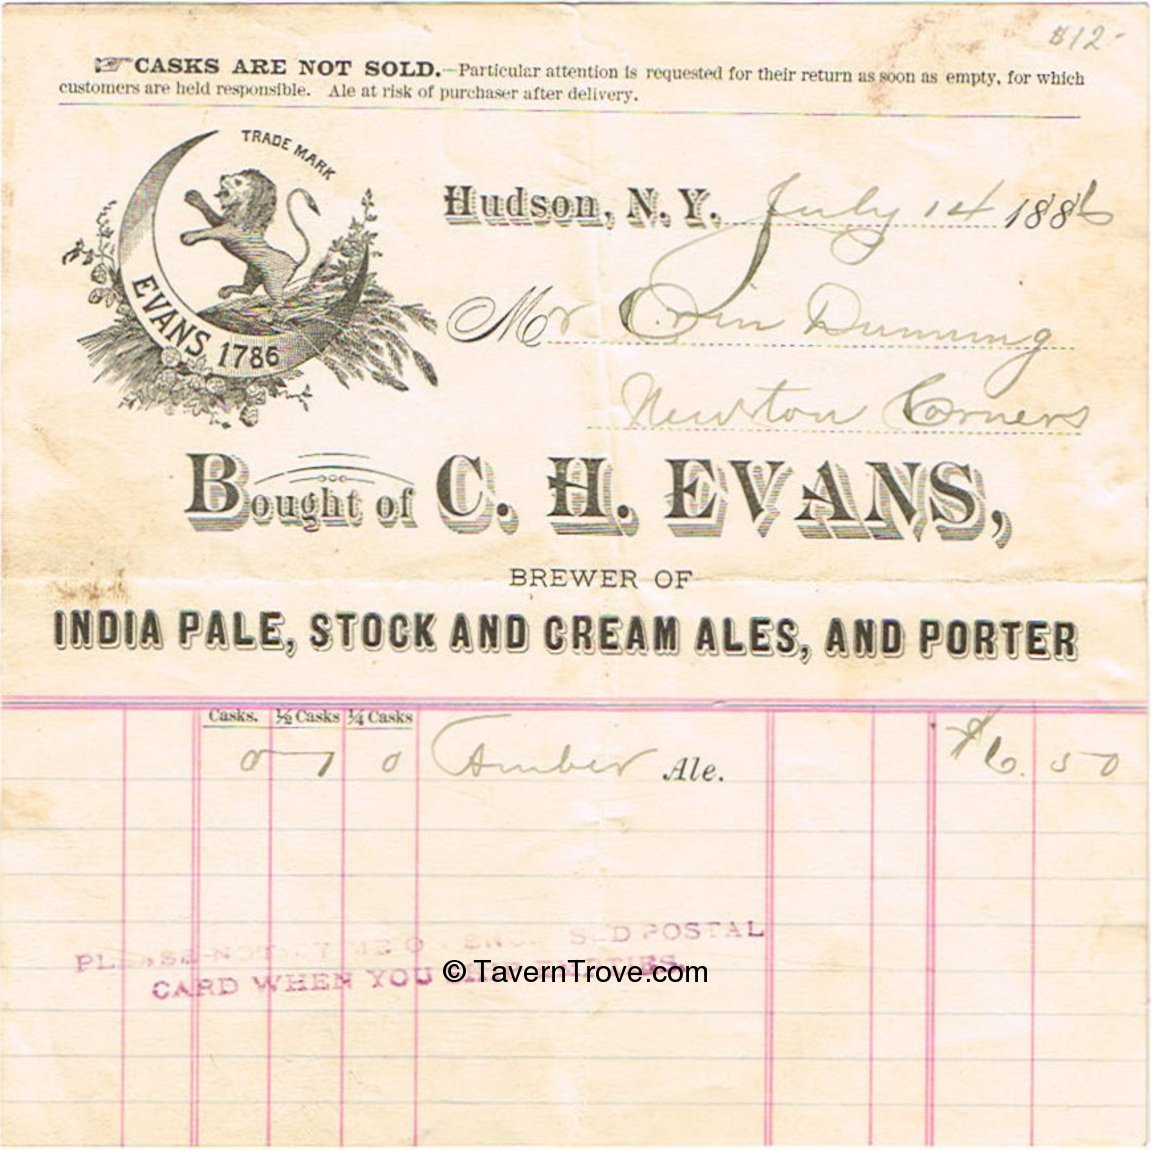 $12-
CASKS ARE NOT SOLD.—Particular attention is requested for their return as soon as empty, for which
customers are held responsible. Ale at risk of purchaser after delivery.
TRADE MARK
EVANS 1786
Hudson, N. Y. July 14 1886
Mr Orin Dunning
Newton Corners
Bought of C. H. EVANS,
BREWER OF
INDIA PALE, STOCK AND CREAM ALES, AND PORTER
Casks. ½ Casks ¼ Casks
0 1 0 Amber Ale. $6.50
PLEASE NOTIFY ME ON ENCLOSED POSTAL
CARD WHEN YOU EMPTIES.
© TavernTrove.com